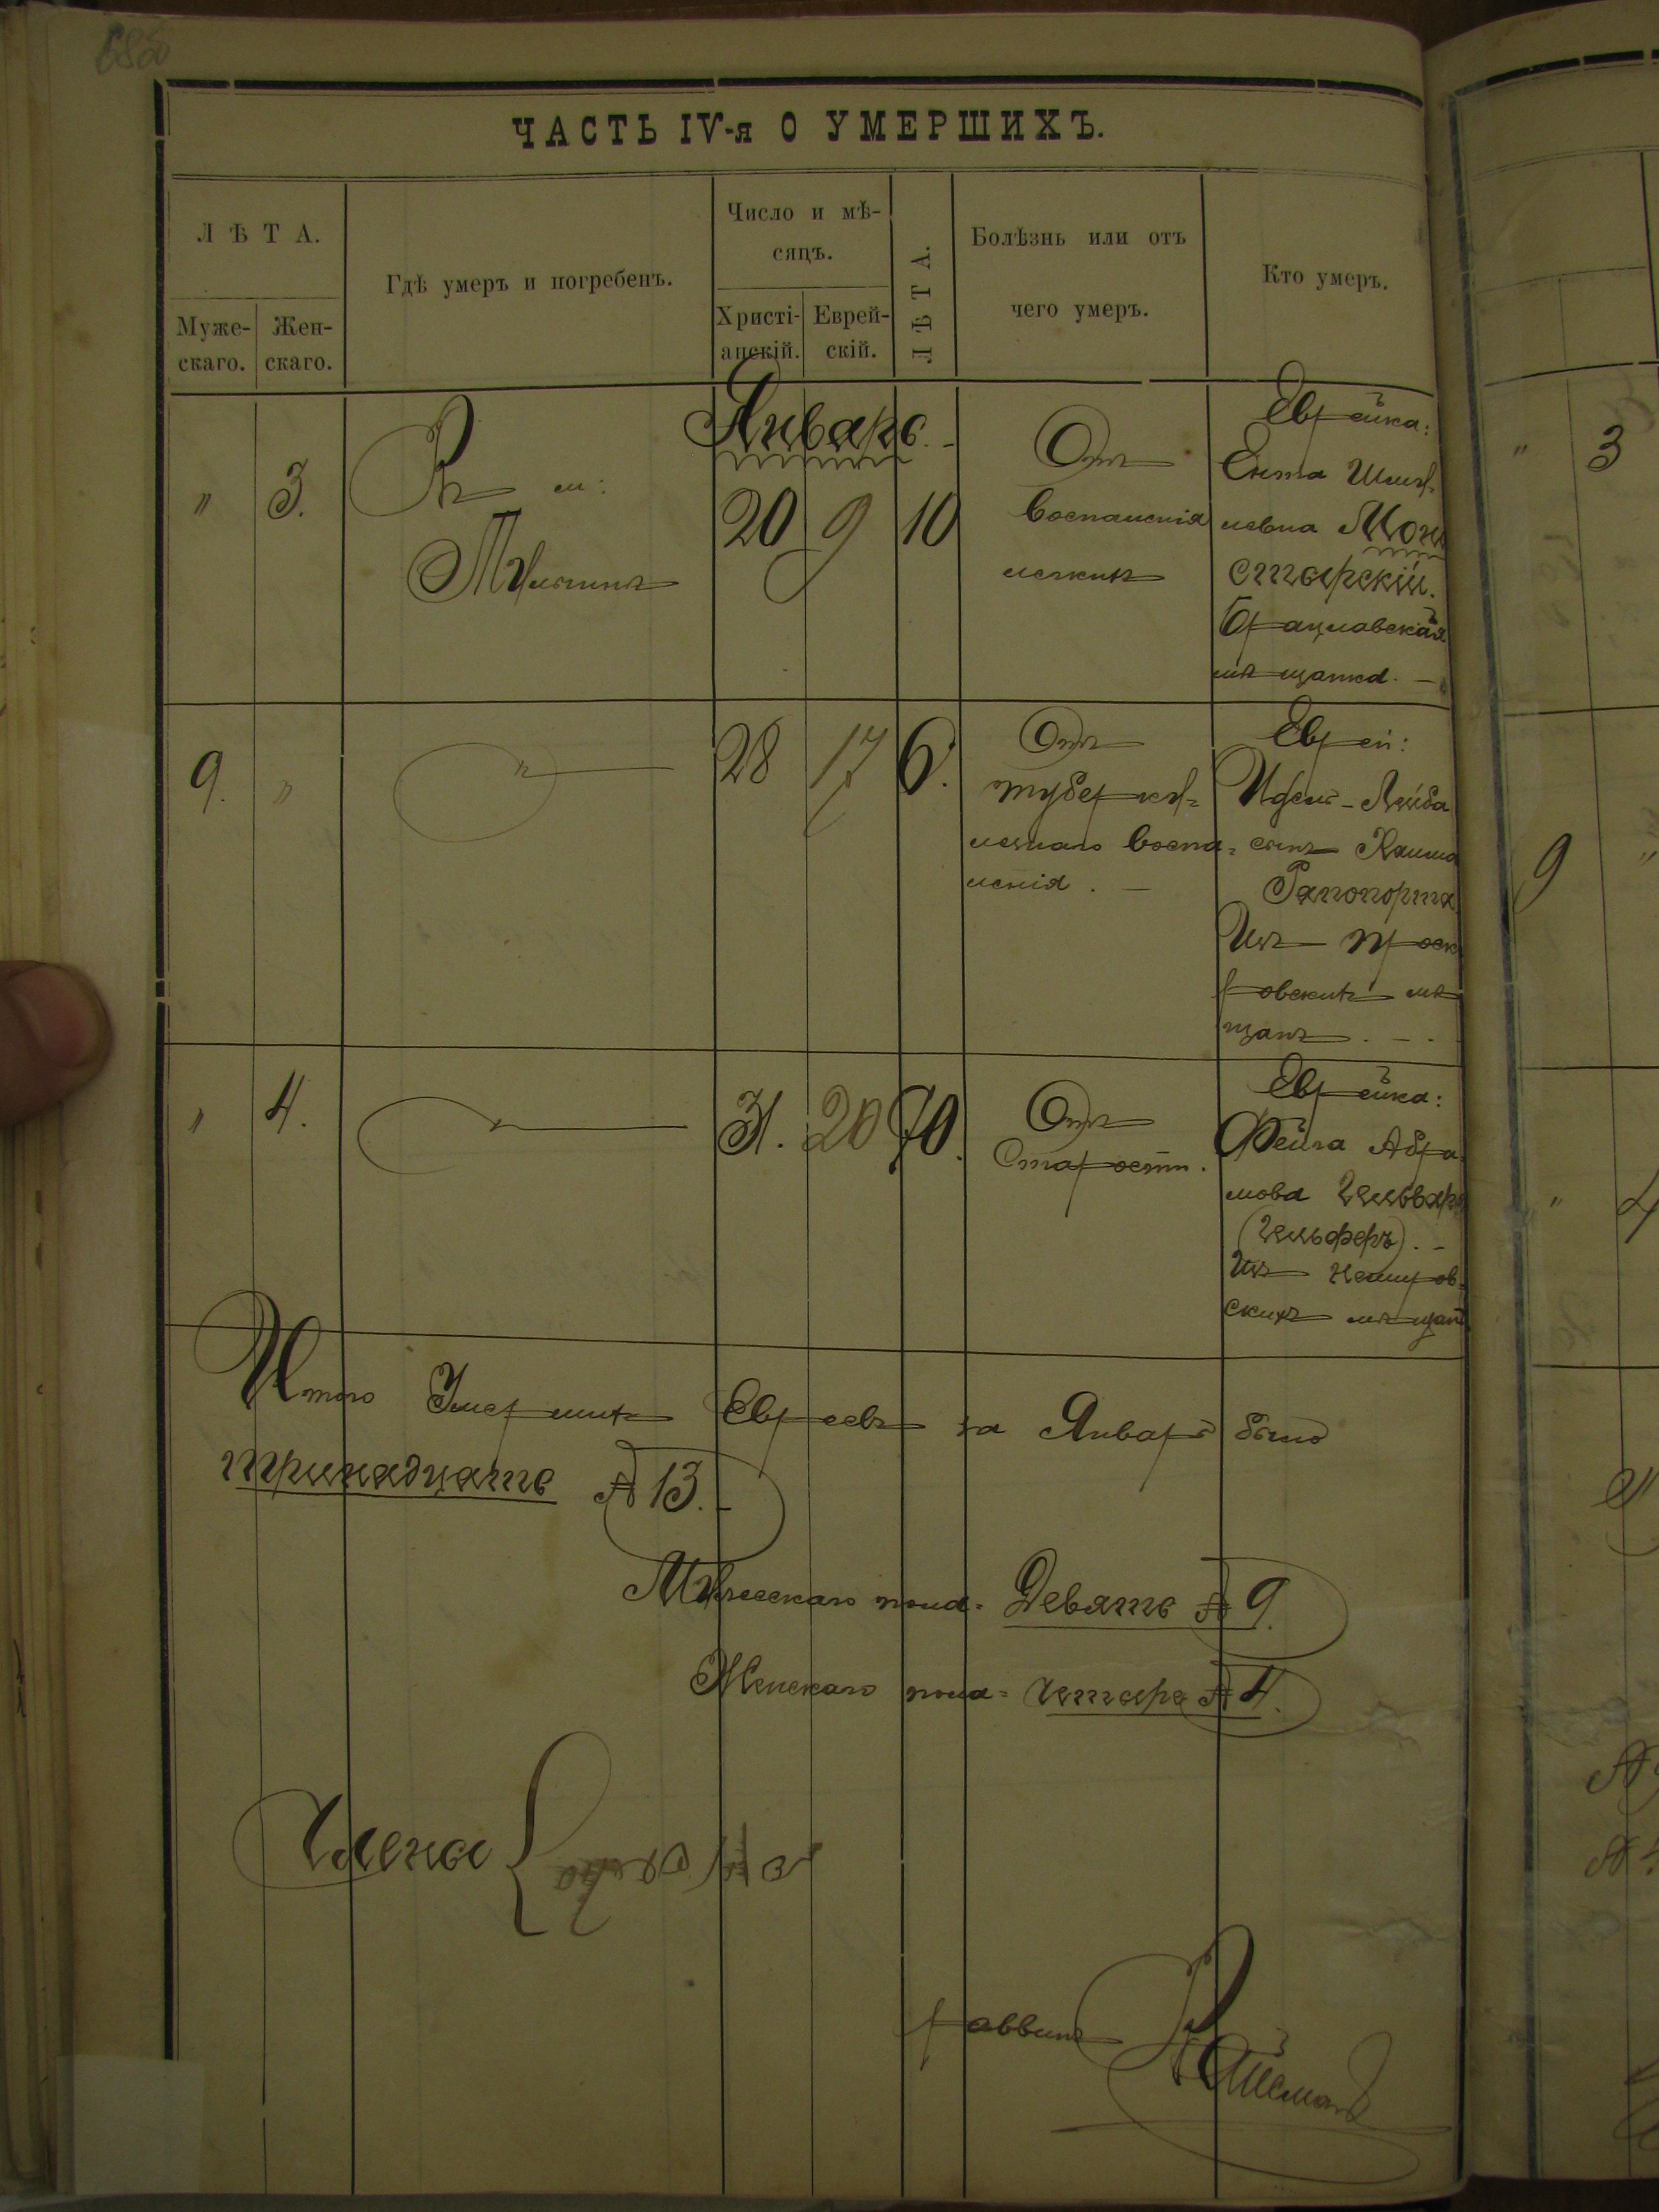 ЧАСТЬ IV-я О УМЕРШИХЪ.
ЛѢТА.
Муже-
скаго.
Жен-
скаго.
Гдѣ умеръ и погребенъ.
Число и мѣ-
сяцъ.
Христі-
анскій.
Еврей-
скій.
ЛѢТА.
Болѣзнь или отъ
чего умеръ.
Кто умеръ.
Январь.
" 3.
Въ м:
Тульчинѣ
20 9 10
Отъ
воспаленія
легкихъ
Еврейка:
Ента Шму-
левна Мона
стырскій.
Брацлавская
мѣщанка. —
9. "
"
28 17 6.
Отъ
туберку-
лезнаго воспа-
ленія. —
Еврей:
Идель-Лейба
сынъ Хаима
Рапопорта
Изъ Проск
уровскихъ мѣ
щанъ. — .
" 4.
"
31. 20 70.
Отъ
Старости.
Еврейка:
Фейга Абра
мова
(Гельферъ). —
Изъ Немиров-
скихъ мѣщанъ
Итого Умершихъ Евреевъ за Январь было
тринадцать № 13. —
Мужескаго пола - Девять № 9.
Женскаго пола - Четыре № 4.
Члены {
раввинъ
" 3
9 "
" 4